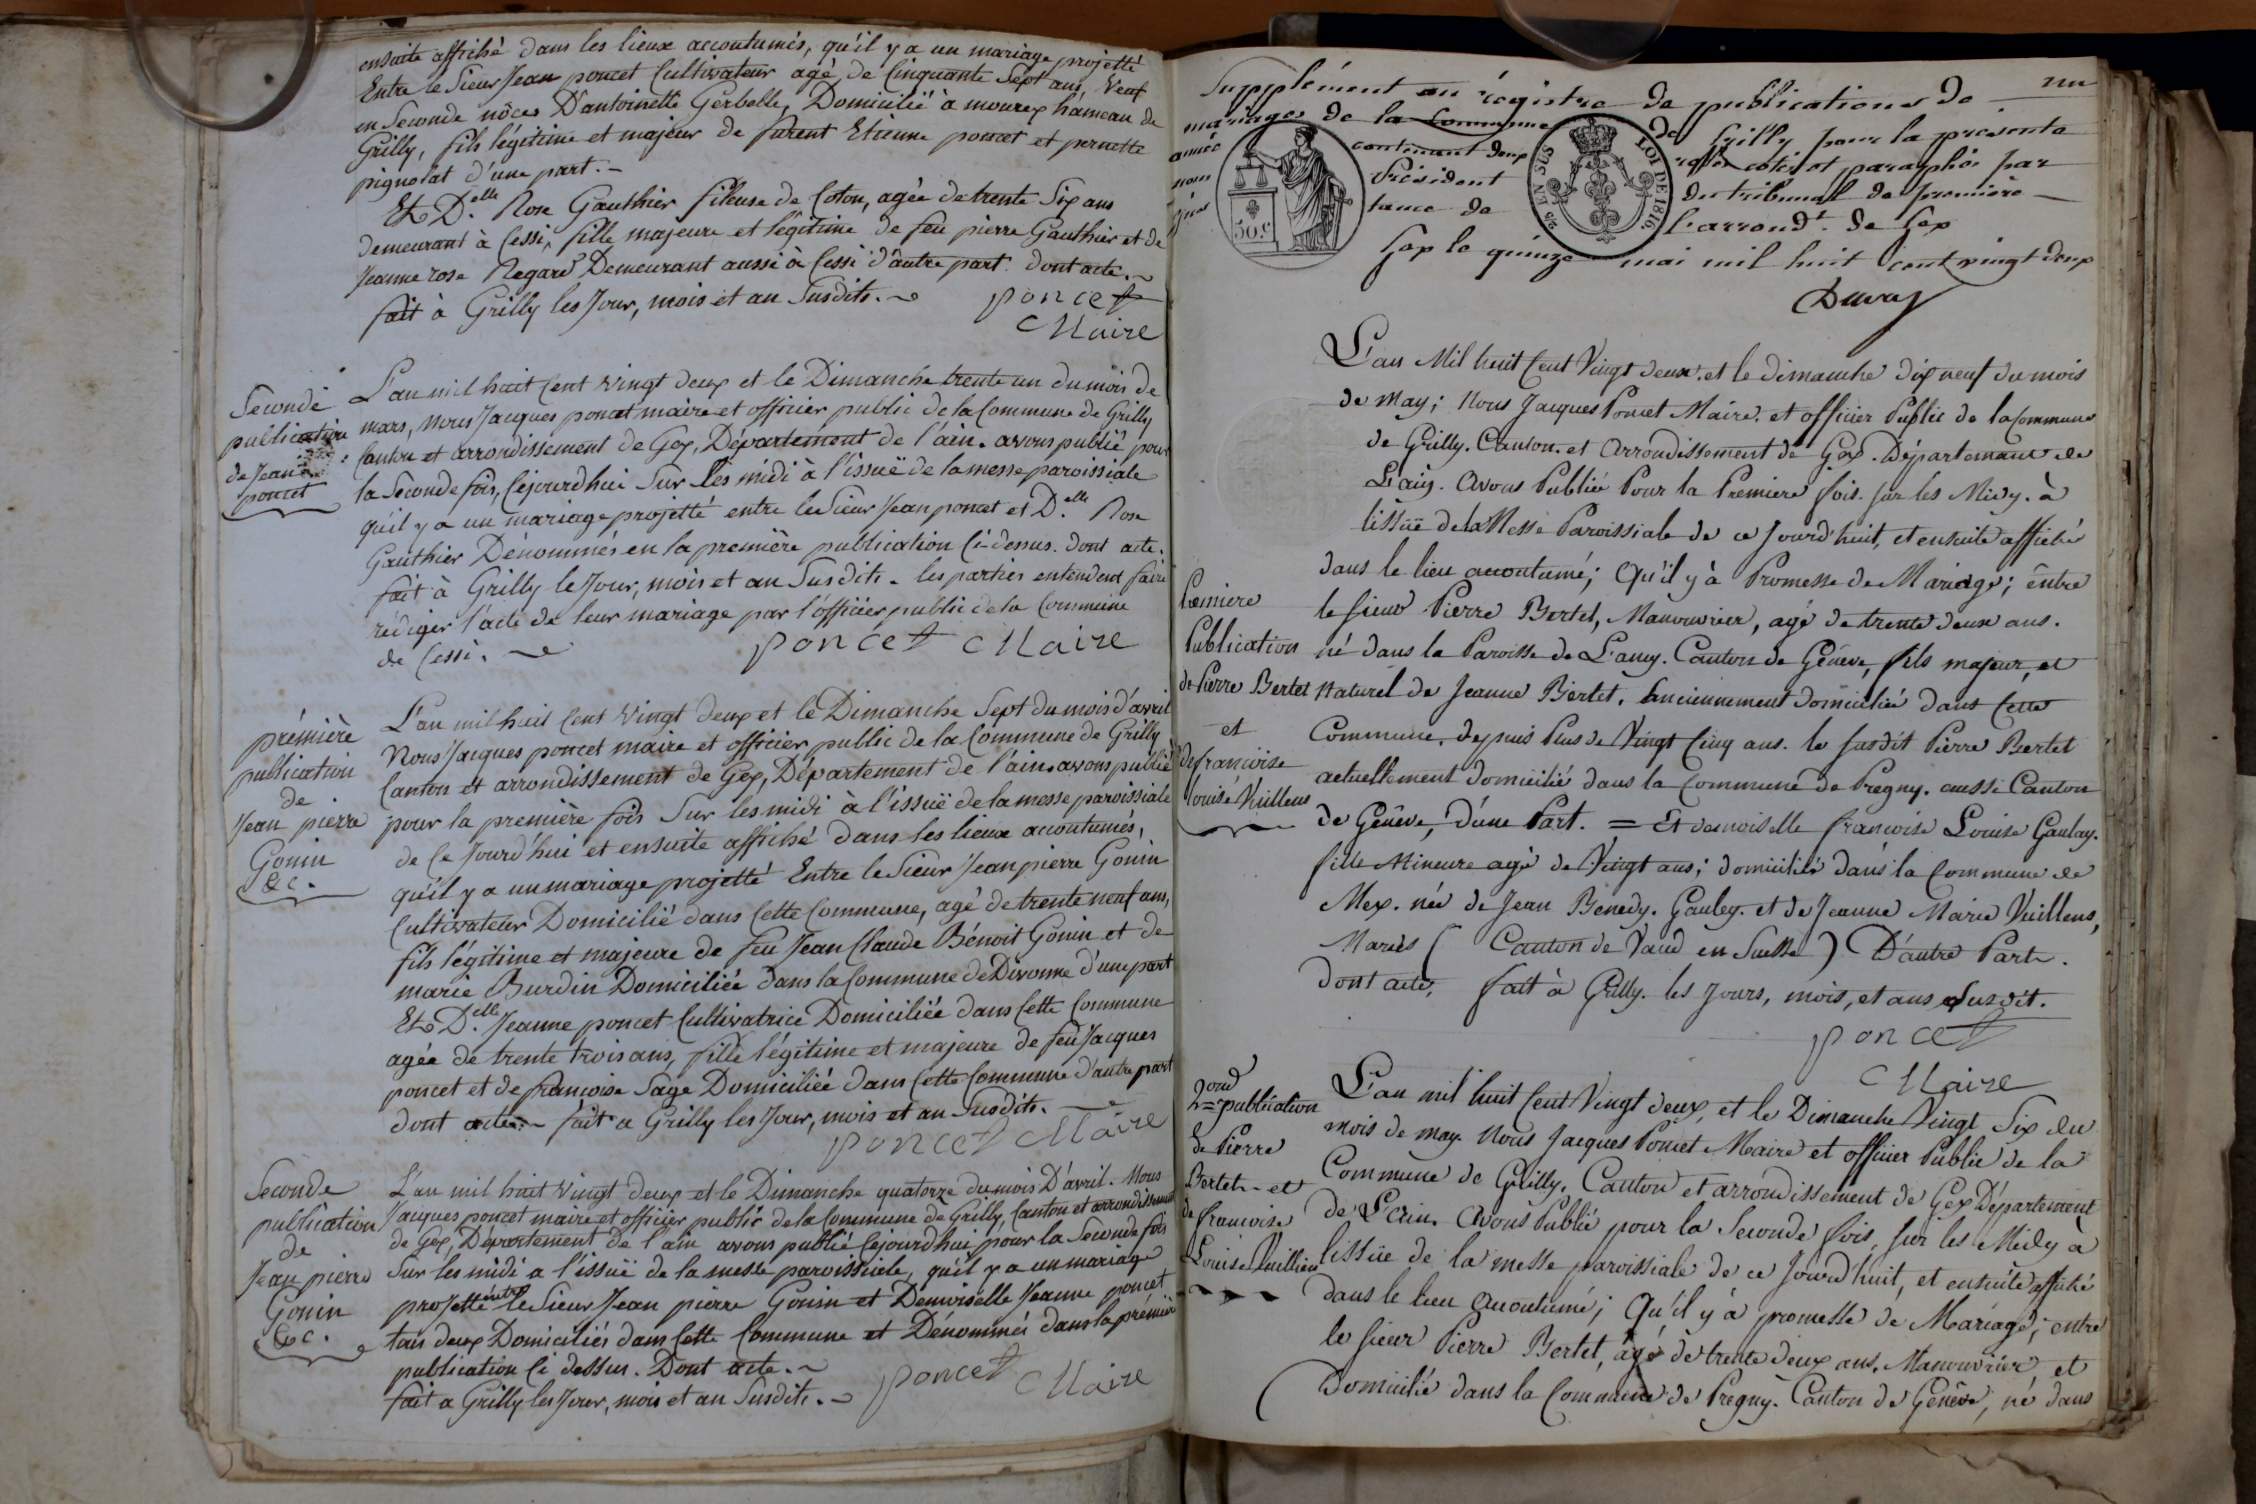 ensuite affiché dans les lieux accoutumés, qu'il y a un mariage projetté
Entre le Sieur Jean poncet Cultivateur agé de Cinquante Sept ans, Veuf
en Seconde nôces D'antoinette Gerbelle, Domicilié à mourex hameau de
Grilly, fils légitime et majeur de parent Etienne poncet et pernette
pignolat d'une part.
Et D.elle Rose Gauthier fileuse de Coton, agée de trente Six ans
demeurant à Cessi, fille majeure et légitime de feu pierre Gauthier et de
Jeanne rose Regard Demeurant aussi à Cessi d'autre part. dont acte.
fait à Grilly les Jour, mois et an Susdits.
poncet
Maire
Seconde
publication
de Jean
poncet
L'an mil huit Cent vingt deux et le Dimanche trente un du mois de
mars, nous Jacques poncet maire et officier public de la Commune de Grilly
Canton et arrondissement de Gex, Département de l'ain. avons publié pour
la Seconde fois, Cejourdhui Sur les midi à l'issuë de la messe paroissiale
qu'il y a un mariage projetté entre le Sieur Jean poncet et D.elle Rose
Gauthier Dénommés en la première publication Ci-dessus. dont acte.
fait à Grilly le Jour, mois et an Susdits. les parties entendent faire
rédiger l'acte de leur mariage par l'officier public de la Commune
de Cessi.
poncet Maire
prémière
publication
de
Jean pierre
Gonin
&c.
L'an mil huit Cent vingt deux et le Dimanche Sept du mois d'avril
Nous Jacques poncet maire et officier public de la Commune de Grilly
Canton et arrondissement de Gex, Département de l'ain avons publié
pour la première fois Sur les midi à l'issuë de la messe paroissiale
de Ce Jourd'hui et ensuite affiché dans les lieux accoutumés,
qu'il y a un mariage projetté Entre le Sieur Jean pierre Gonin
Cultivateur Domicilié dans Cette Commune, agé de trente neuf ans,
fils légitime et majeure de feu Jean Claude Bénoit Gonin et de
marie Burdin Domiciliée dans la Commune de Divonne d'une part
Et D.elle Jeanne poncet Cultivatrice Domiciliée dans Cette Commune
agée de trente trois ans, fille légitime et majeure de feu Jacques
poncet et de françoise Sage Domiciliée dans Cette Commune d'autre part
dont acte. fait a Grilly les Jour, mois et an Susdits.
poncet Maire
Seconde
publication
de
Jean pierre
Gonin
&c.
L'an mil huit vingt deux et le Dimanche quatorze du mois D'avril. Nous
Jacques poncet maire et officier public de la Commune de Grilly, Canton et arrondissement
de Gex, Département de l'ain avons publié Cejourd'hui pour la Seconde fois
Sur les midi a l'issuë de la messe paroissiale, qu'il y a un mariage
projetté entre le Sieur Jean pierre Gonin et Demoiselle Jeanne poncet
tous deux Domiciliés dans Cette Commune et Dénommés dans la prémière
publication Ci dessus. Dont acte.
fait a Grilly les Jour, mois et an Susdits.
poncet Maire
Supplément au régistre de publications de
mariages de la Commune de Grilly pour la présente
année contenant deux cotés et paraphés par
nous Président du tribunal de première
tance de l'arrond.t de Gex
Gex le quinze mai mil huit cent vingt deux
50.C
25 EN SUS
LOI DE 1816
Première
Publication
de Pierre Bertet
et
de francoise
Louise Vuillens
L'an Mil huit Cent Vingt deux. et le dimanche dix neuf du mois
de May; Nous Jacques Poncet Maire. et officier Public de la Commune
de Grilly. Canton. et Arrondissement de Gex. Département de
L'ain. Avons Publié Pour la Premiere fois. Sur les Midy. à
lissuë de la Messe Paroissiale de ce Jourd'huit, et ensuite affiché
dans le lieu accoutumé; Qu'il y à Promesse de Mariage; êntre
le sieur Pierre Bertet, Manouvrier, agé de trente deux ans.
né dans la Paroisse de Lancy. Canton de Génève, fils majeur, et
Naturel de Jeanne Bertet. anciennement domiciliée dans Cette
Commune. depuis Plus de Vingt Cinq ans. le susdit Pierre Bertet
actuellement domicilié dans la Commune de Pregny. aussi Canton
de Génève, d'une Part. = Et demoiselle francoise Louise Gaulay.
fille Mineure agé de Vingt ans; domiciliés dans la Commune de
Mex. née de Jean Benedy. Gauley. et de Jeanne Marie Vuillens,
Mariés ( Canton de Vaud en Suisse ) D'autre Part.
dont acte, fait à Grilly. les Jours, mois, et ans Susdit.
poncet
Maire
2.=ond publication
de Pierre
Bertet et
de francoise
Louise Vuillien
L'an mil huit Cent Vingt deux, et le Dimanche Vingt Six du
mois de may. Nous Jacques Poncet Maire et officier Public de la
Commune de Grilly, Canton et arrondissement de Gex Département
de L'ain. Avons Publié pour la Seconde fois, sur les Midy à
lissüe de la messe paroissiale de ce Jourd'huit, et ensuite affiché
dans le lieu accoutumé; Qu'il y à promesse de Mariage; entre
le sieur Pierre Bertet, âgé de trente deux ans, Manouvrier et
Domicilié dans la Commune de Pregny. Canton de Génève, né dans